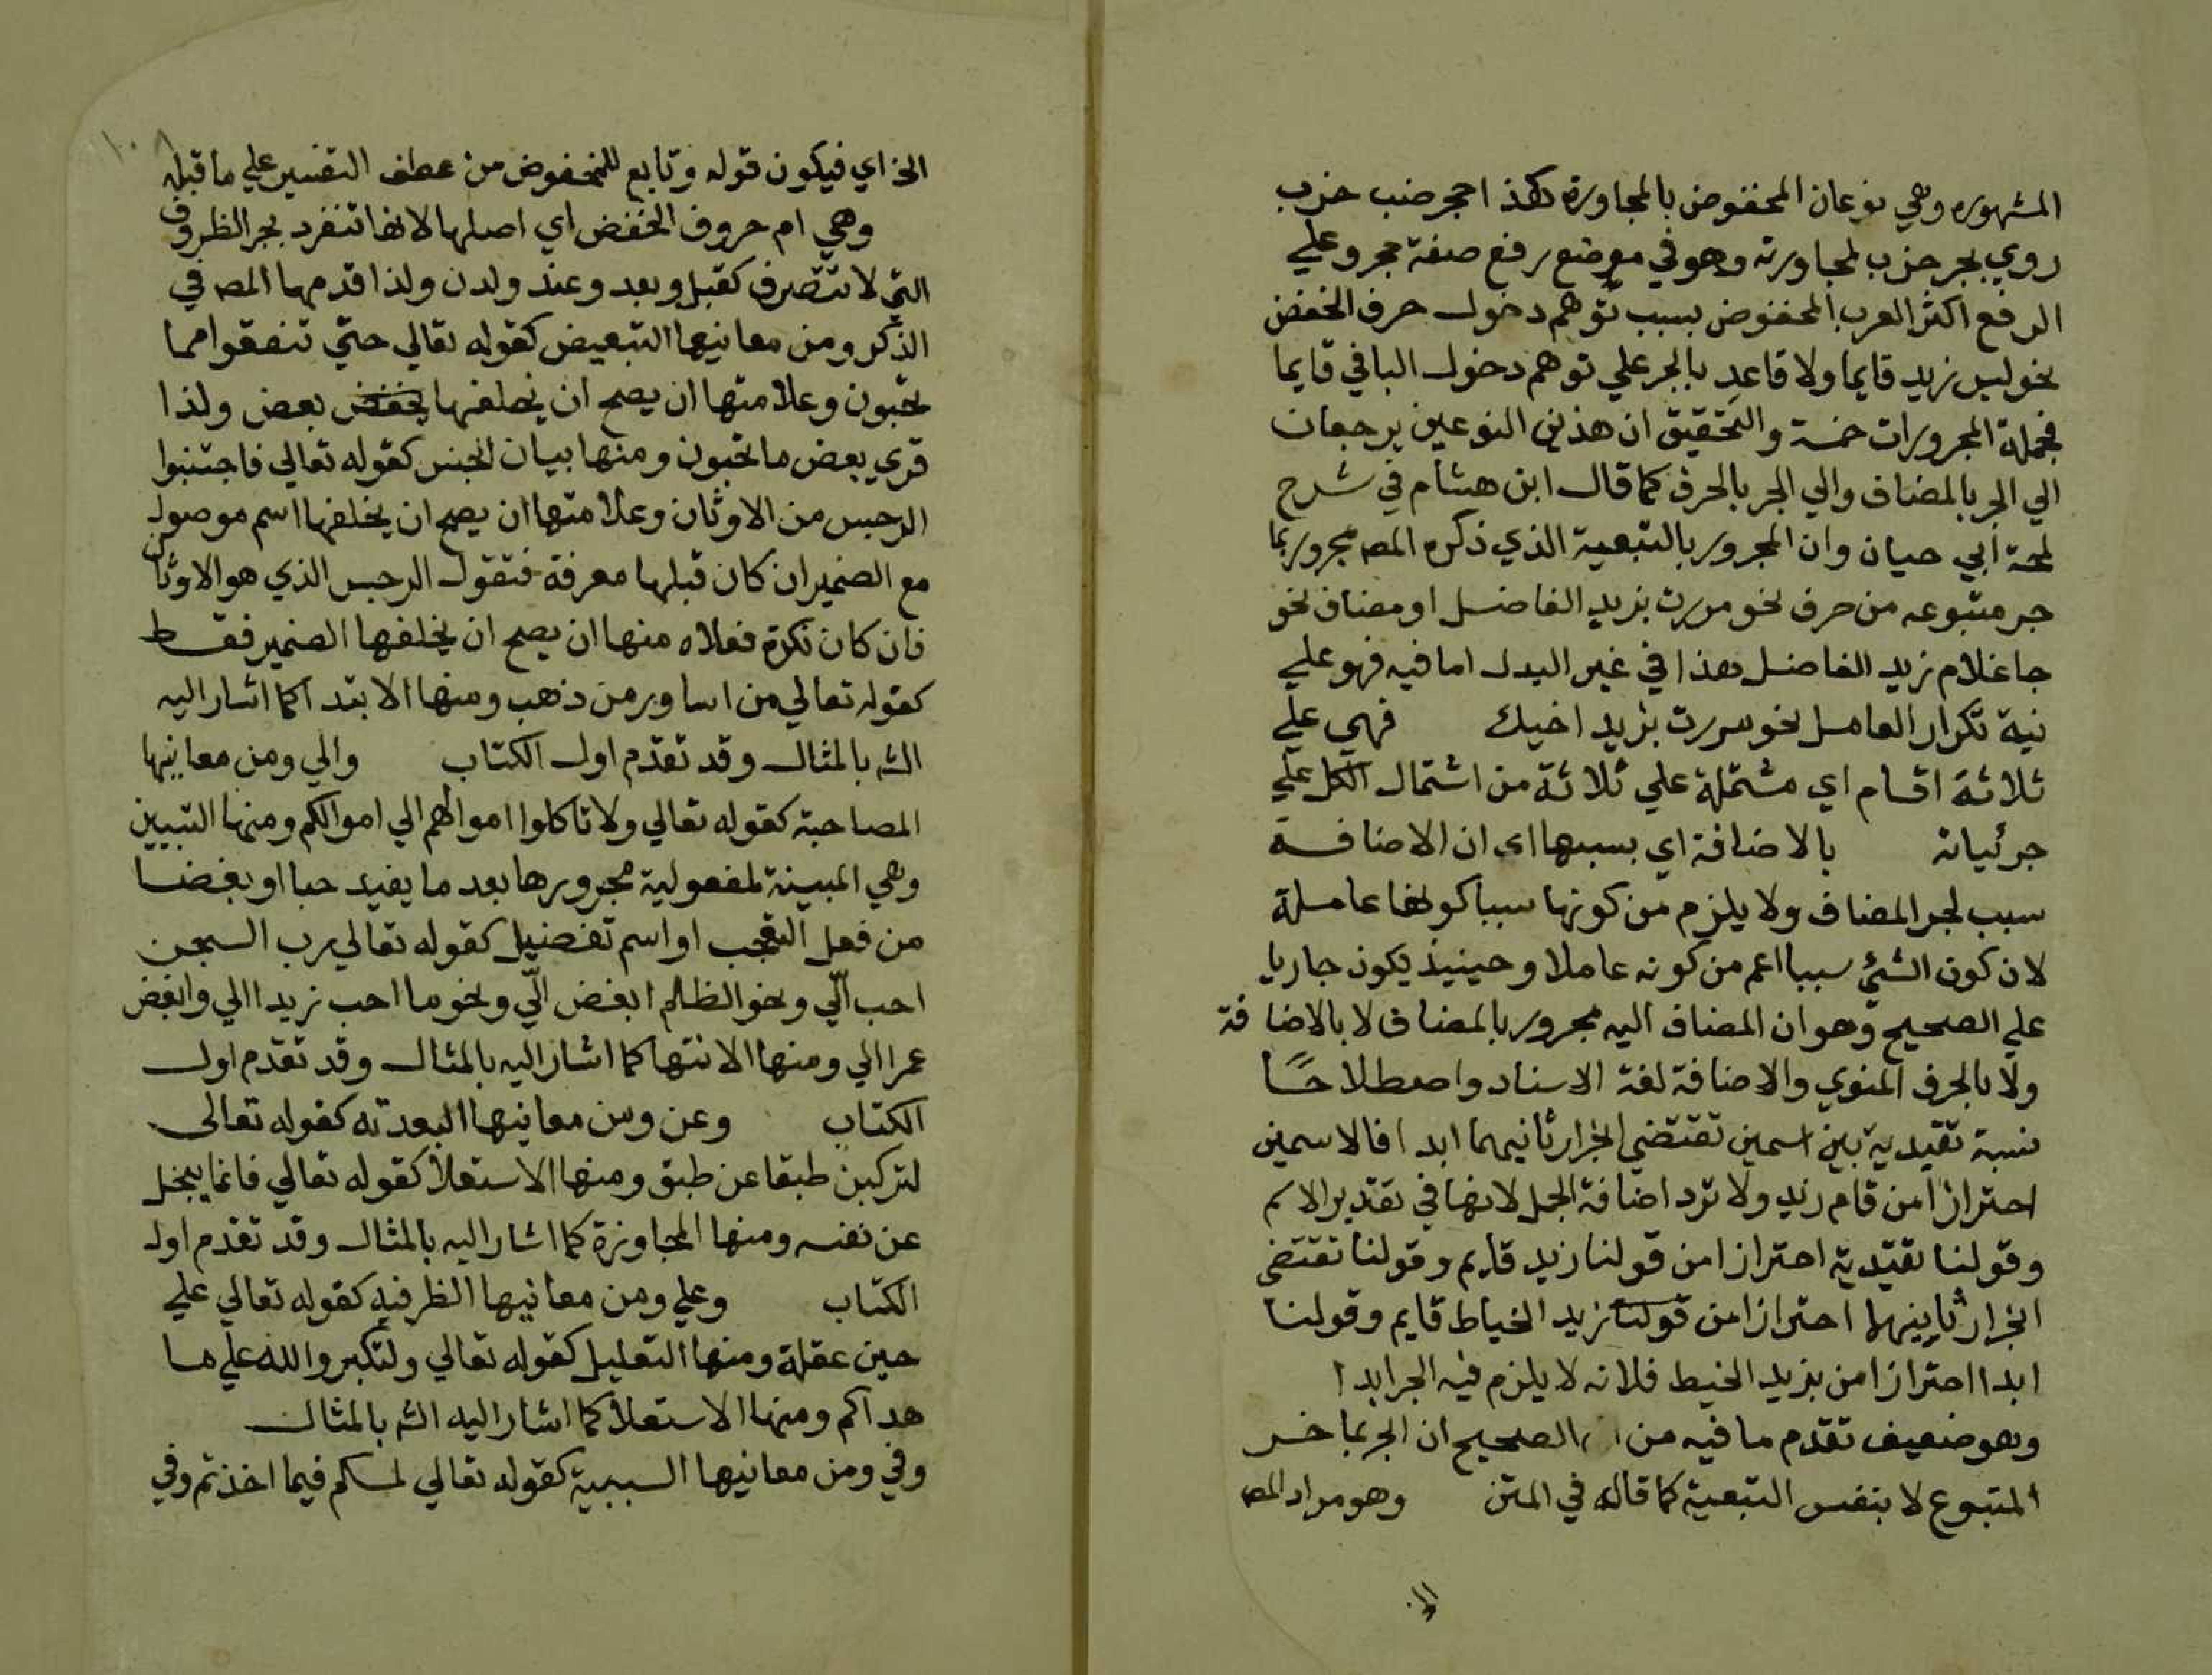 المشهوره وهي نوعان المخفوض بالمجاورة كهذا حجر ضب خرب
روي بجر خرب لمجاورته وهو في موضع رفع صفة حجر وعلي
الرفع اكثر العرب المخفوض بسبب توهم دخول حرف الخفض
نحو ليس زيد قايما ولا قاعد بالجر علي توهم دخول البا في قايما
فجملة المجرورات خمسة والتحقيق ان هذين النوعين يرجعان
الي الجر بالمضاف والي الجر بالحرف كما قال ابن هشام في شرح
لمحة ابي حيان وان المجرور بالتبعية الذي ذكره المص مجرور بما
جر متبوعه من حرف نحو مررت بزيد الفاضل او مضاف نحو
جا غلام زيد الفاضل هذا في غير البدل اما فيه فهو علي
نية تكرار العامل نحو مررت بزيد اخيك فهي علي
ثلاثة اقسام اي مشتملة علي ثلاثة من اشتمال الكل علي
جرئياته بالاضافة اي بسببها اي ان الاضافة
سبب لجر المضاف ولا يلزم من كونها سببا كونها عاملة
لان كون الشئ سببا اعم من كونه عاملا وحينيذ يكون جاريا
علي الصحيح وهو ان المضاف اليه مجرور بالمضاف لا بالاضافة
ولا بالحرف المنوي والاضافة لغة الاسناد واصطلاحًا
نسبة تقيدية بين اسمين تقتضي انجرار ثانيهما ابدا فالاسمين
احترازا من قام زيد ولا ترد اضافة الجمل لانها في تقدير الاسم
وقولنا تقيدية احترازا من قولنا زيد قايم وقولنا تقتضي
انجرار ثانيهما احترازا من قولنا زيد الخياط قايم وقولنا
ابدا احترازا من بزيد الخيط فلانه لا يلزم فيه الجر ابدا
وهو ضعيف تقدم ما فيه من ان الصحيح ان الجر بما خـر
المتبوع لا بنفس التبعية كما قاله في المتن وهو مراد المص
الخ اي فيكون قوله وتابع للمخفوض من عطف التفسير علي ما قبله
وهي ام حروف الخفض اي اصلها لانها تنفرد بجر الظروف
التي لا تتصرف كقبل وبعد وعند ولدن ولذا قدمها المص في
الذكر ومن معانيها التبعيض كقوله تعالي حتي تنفقوا مما
تحبون وعلامتها ان يصح ان يخلفها بعض ولذا
قري بعض ما تحبون ومنها بيان الجنس كقوله تعالي فاجتنبوا
الرجس من الاوثان وعلامتها ان يصح ان يخلفها اسم موصول
مع الضمير ان كان قبلها معرفة فتقول الرجس الذي هو الاوثان
فان كان نكرة فعلامه منها ان يصح ان يخلفها الضمير فقط
كقوله تعالي من اساور من ذهب ومنها الابتدا كما اشار اليه
الش بالمثال وقد تقدم اول الكتاب والي ومن معانيها
المصاحبة كقوله تعالي ولا تاكلوا اموالهم الي اموالكم ومنها التبيين
وهي المبينة لمفعولية مجرورها بعد ما يفيد حبا او بغضا
من فعل التعجب او اسم تفضيل كقوله تعالي رب السجن
احب الّي ونحو الظالم ابغض الّي ونحو ما احب زيدا الي وابغض
عمرا الي ومنها الانتها كما اشار اليه بالمثال وقد تقدم اول
الكتاب وعن ومن معانيها البعدية كقوله تعالى
لتركبن طبقا عن طبق ومنها الاستعلا كقوله تعالي فانما يبخل
عن نفسه ومنها المجاوزة كما اشار اليه بالمثال وقد تقدم اول
الكتاب وعلي ومن معانيها الظرفية كقوله تعالي علي
حين غفلة ومنها التعليل كقوله تعالي ولتكبروا الله علي ما
هداكم ومنها الاستعلا كما اشار اليه الش بالمثال
وفي ومن معانيها السببية كقوله تعالي لمسكم فيما اخذتم وفي